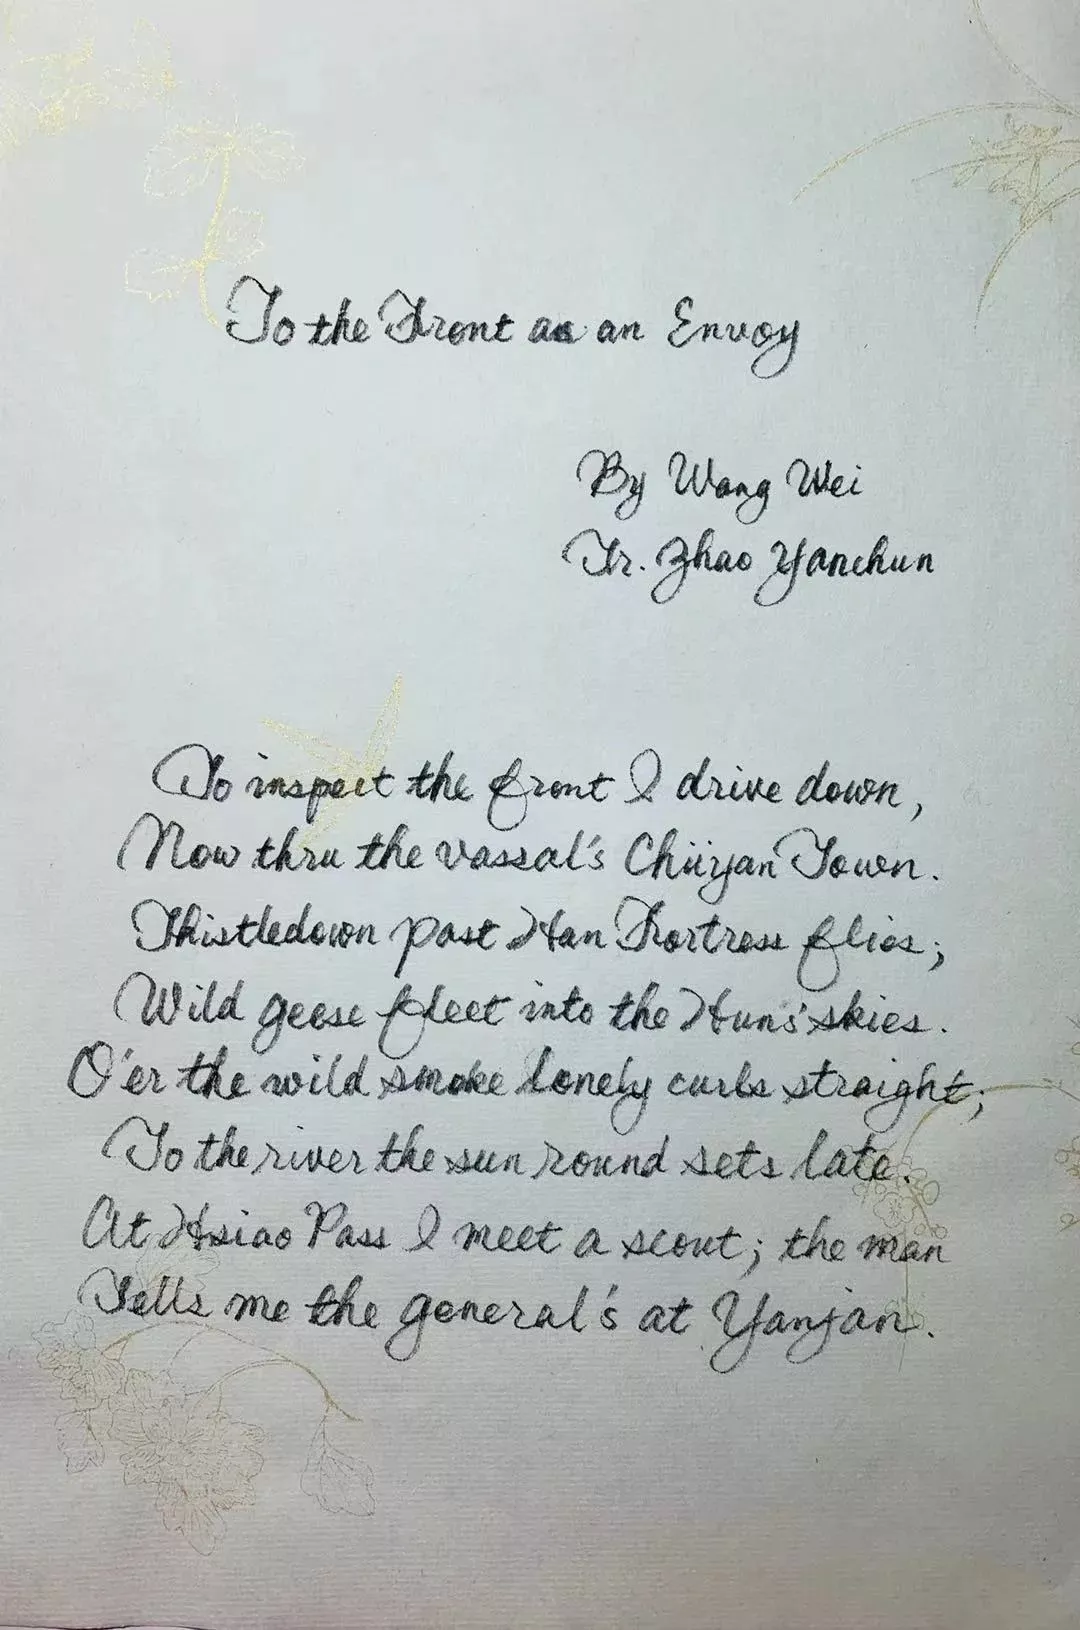 To the Front as an Envoy
By Wang Wei
Tr. Zhao Yanchun
To inspect the front I drive down,
Now thru the vassal's Chüyan Town.
Thistledown past Han Fortress flies;
Wild geese fleet into the Huns' skies.
O'er the wild smoke lonely curls straight;
To the river the sun round sets late.
At Hsiao Pass I meet a scout; the man
Tells me the general's at Yanjan.